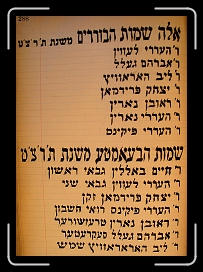 288
אלה שמות הבוררים משנת ת'ר'צ'ט
ר' הערי לעווין
ר' אברהם געלל
ר' ליב האראוויץ
ר' יצחק פרידמאן
ר' ראובן גארין
ר' הערי גארין
ר' הערי פיקינס
שמות הבעאמטע משנת ת'ר'צ'ט
ר' חיים באללין גבאי ראשון
ר' הערי לעווין גבאי שני
ר' יצחק פרידמאן זקן
ר' הערי פיקינס רואי חשבון
ר' ראובן גארין טרעזשורער
ר' אברהם געלל סעקרעטער
ר' ליב האראוויץ שמש